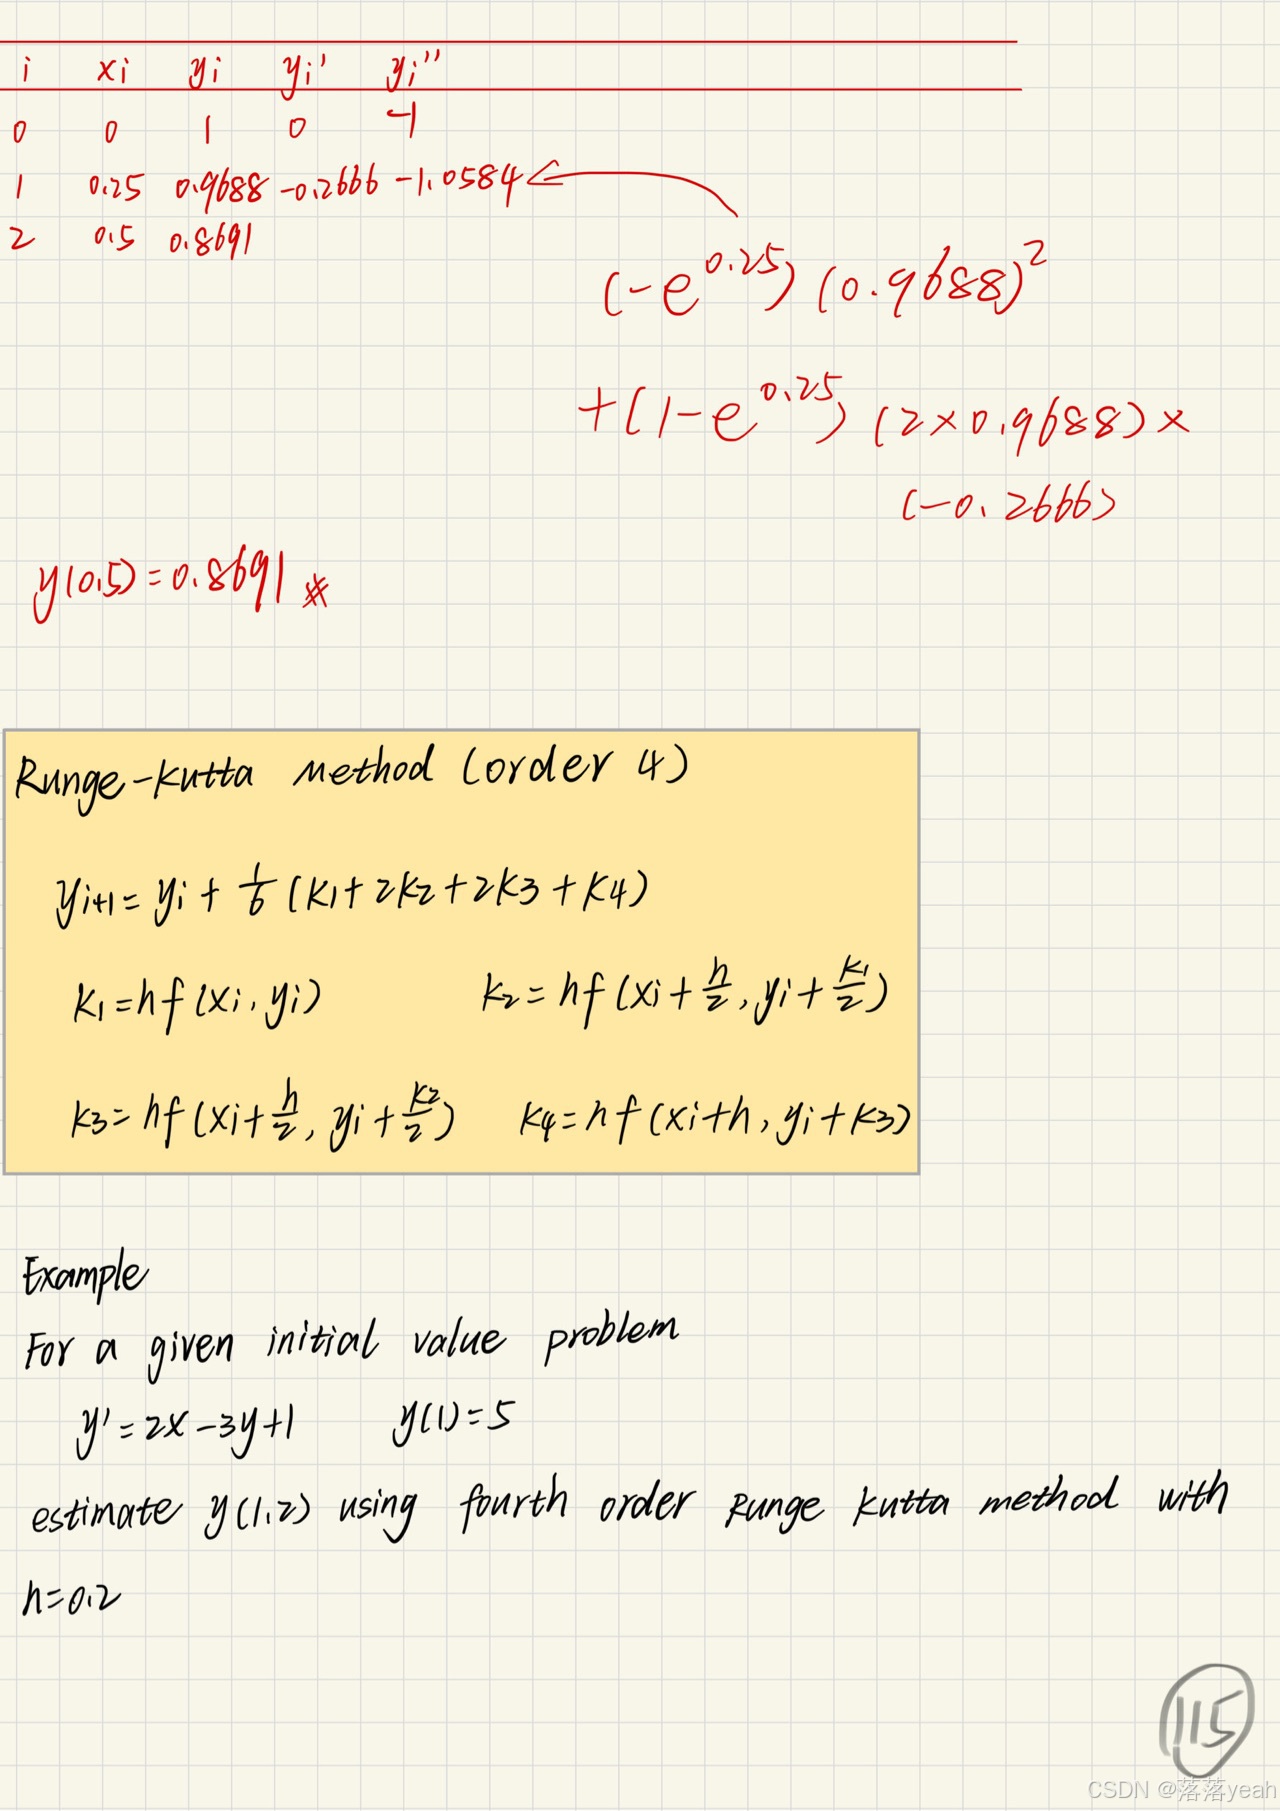 i xi yi yi' yi''
0 0 1 0 -1
1 0.25 0.9688 -0.2666 -1.0584
2 0.5 0.8691
(-e^0.25) (0.9688)^2
+(1-e^0.25) (2×0.9688)×
(-0.2666)
y(0.5)=0.8691 ※
Runge-Kutta Method (order 4)
yi+1 = yi + 1/6 (K1+2K2+2K3+K4)
K1=hf(xi, yi) K2=hf(xi+h/2, yi+K1/2)
K3=hf(xi+h/2, yi+K2/2) K4=hf(xi+h, yi+K3)
Example
For a given initial value problem
y'=2x-3y+1 y(1)=5
estimate y(1.2) using fourth order Runge Kutta method with
h=0.2
115
CSDN @落落yeah